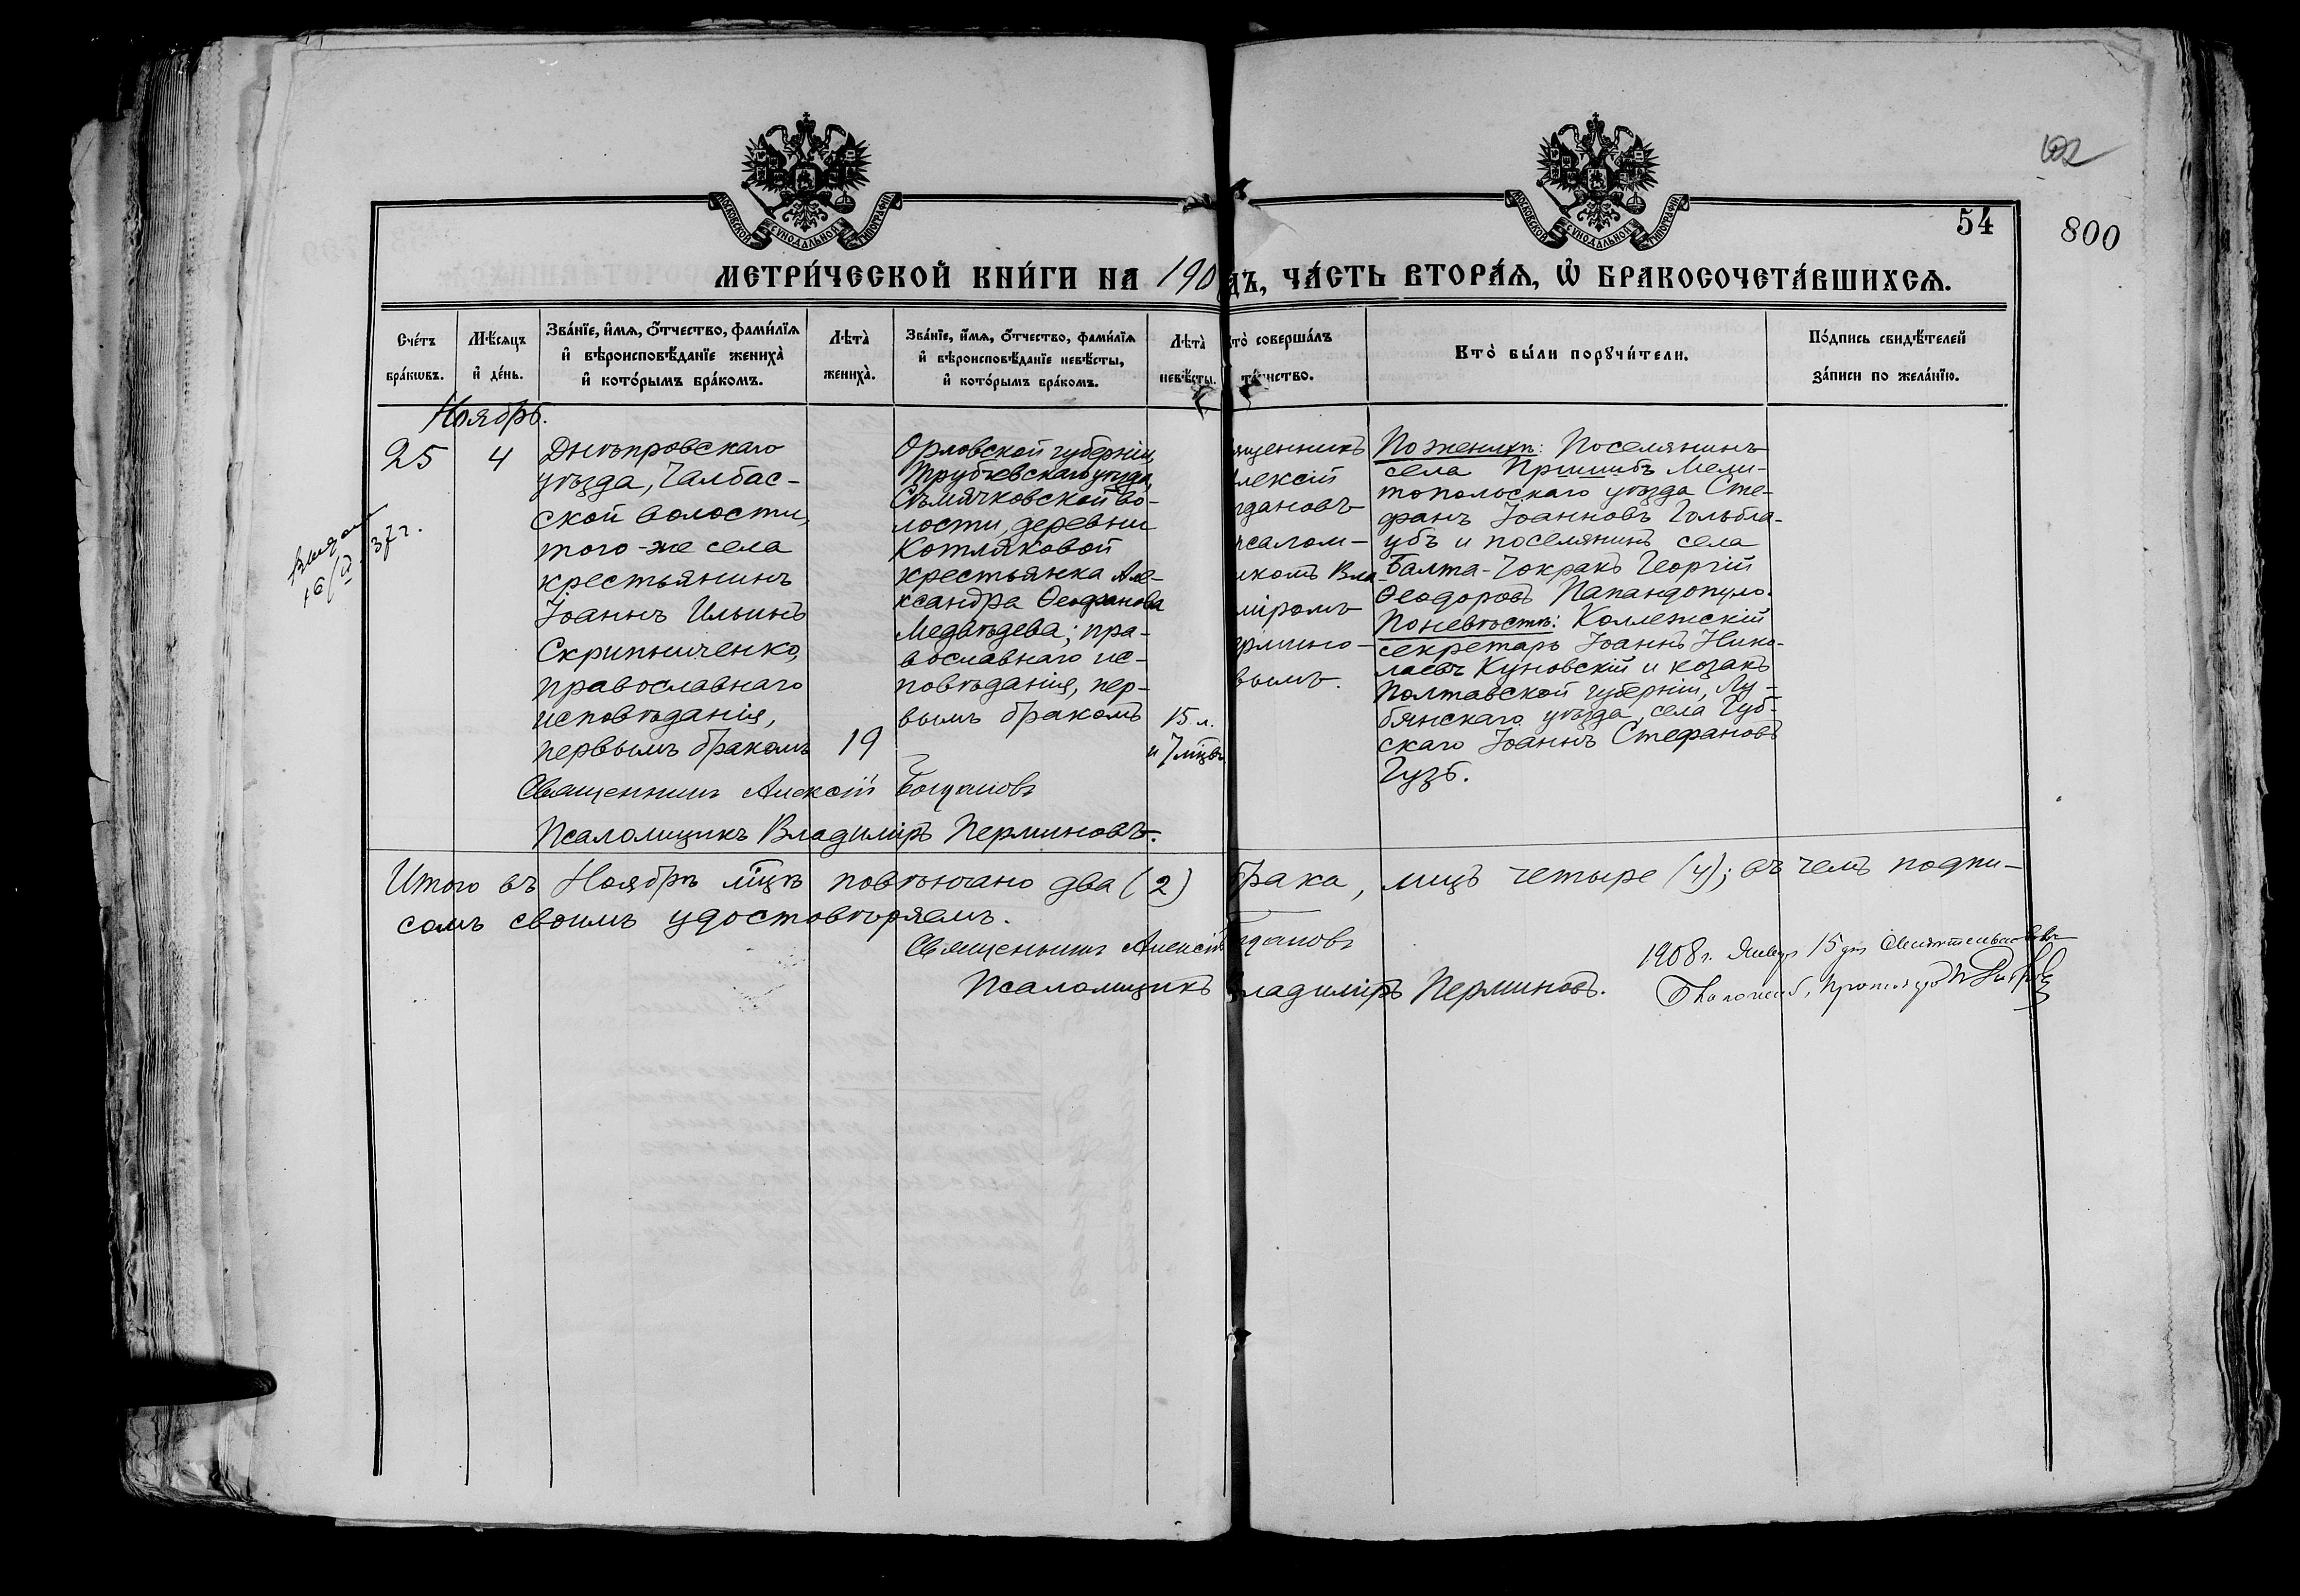 102
54
800
МОСКОВСКОЙ СѴНОДАЛЬНОЙ ТИПОГРАФІИ
МОСКОВСКОЙ СѴНОДАЛЬНОЙ ТИПОГРАФІИ
МЕТРИ́ЧЕСКОЙ КНИ́ГИ НА 190 ДЪ, ЧА́СТЬ ВТОРА́Ѧ, Ѽ БРАКОСОЧЕТА́ВШИХСѦ.
Сче́тъ бра́кѡвъ.
Мѣ́сяцъ и҆ де́нь.
Зва́нїе, и҆́мѧ, ѻ҆́тчество, фами́лїѧ и҆ вѣроисповѣ́данїе жениха̀ и҆ кото́рымъ бра́комъ.
Лѣта̀ жениха̀.
Зва́нїе, и҆́мѧ, ѻ҆́тчество, фами́лїѧ и҆ вѣроисповѣ́данїе невѣ́сты, и҆ кото́рымъ бра́комъ.
Лѣта̀ невѣ́сты.
то̀ соверша́лъ та́инство.
Кто̀ бы́ли порꙋчи́тели.
По́дпись свидѣ́телей за́писи по жела́нїю.
Ноябрь.
25
4
Днѣпровскаго
уѣзда, Чалбас-
ской волости,
того-же села
крестьянинъ
Іоаннъ Ильинъ
Скрипниченко,
православнаго
исповѣданія,
первымъ бракомъ
19
Орловской губерніи
Трубчевскаго уѣзда,
Сѣмячковской во-
лости, деревни
Котляковой
крестьянка Але-
ксандра Ѳеофанова
Медвѣдева; пра-
вославнаго ис-
повѣданія, пер-
вымъ бракомъ
15 л.
и 7 мцвъ
ященникъ
лексій
гдановъ
псалом-
икомъ Вла-
міромъ
рмино-
вымъ.
По женихѣ: Поселянинъ
села Пришибъ Мели-
топольскаго уѣзда Сте-
фанъ Іоанновъ Гольбла-
убъ и поселянинъ села
Балта-Чокракъ Георгій
Ѳеодоровъ Папандопуло.
По невѣстѣ: Коллежскій
секретарь Іоаннъ Нико-
лаевъ Куновскій и козакъ
Полтавской губерніи, Лу-
бянскаго уѣзда, села Губ-
скаго Іоаннъ Стефановъ
Гузь.
Выдана
16/IV 37 г.
Священникъ Алексій Богдановъ
Псаломщикъ Владиміръ Перминовъ.
Итого въ Ноябрѣ мцѣ повѣнчано два (2) брака, лицъ четыре (4); въ чемъ подпи-
сомъ своимъ удостовѣряемъ.
Священникъ Алексій гдановъ
Псаломщикъ ладиміръ Перминовъ.
1908 г. Январ 15 дня